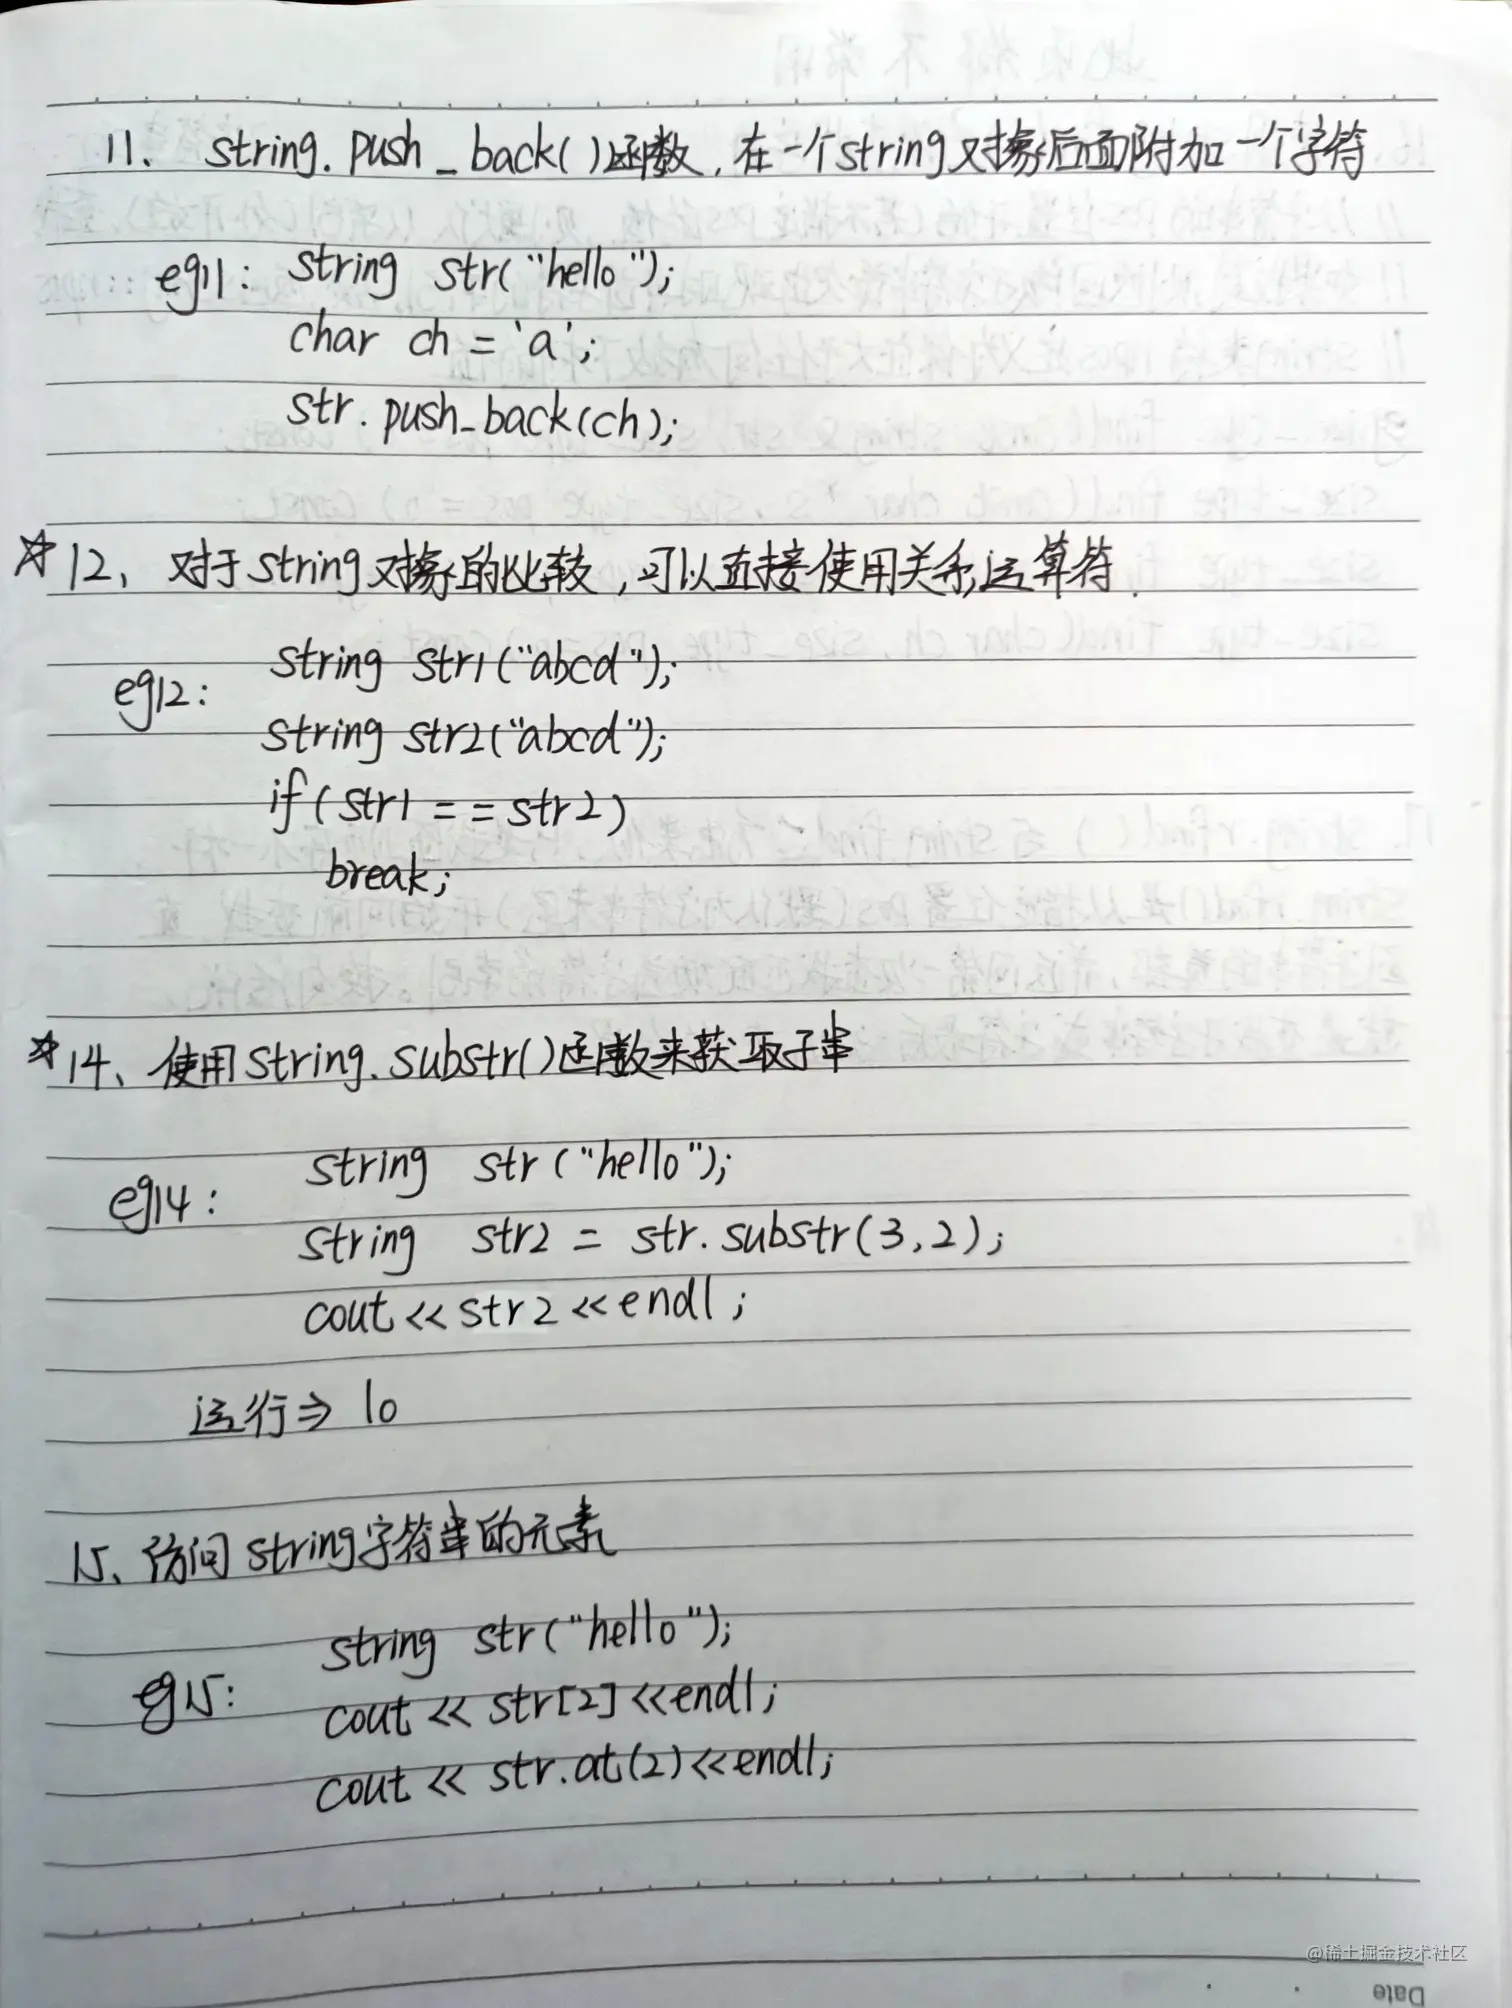 11、string.push_back()函数，在一个string对象后面附加一个字符
eg11: string str("hello");
char ch = 'a';
str.push_back(ch);
☆12、对于string对象的比较，可以直接使用关系运算符.
eg12: string str1("abcd");
string str2("abcd");
if(str1 == str2)
break;
☆14、使用string.substr()函数来获取子串
eg14: string str("hello");
string str2 = str.substr(3,2);
cout << str2 << endl;
运行⇒ lo
15、访问string字符串的元素
eg15: string str("hello");
cout << str[2] << endl;
cout << str.at(2) << endl;
@稀土掘金技术社区
Date